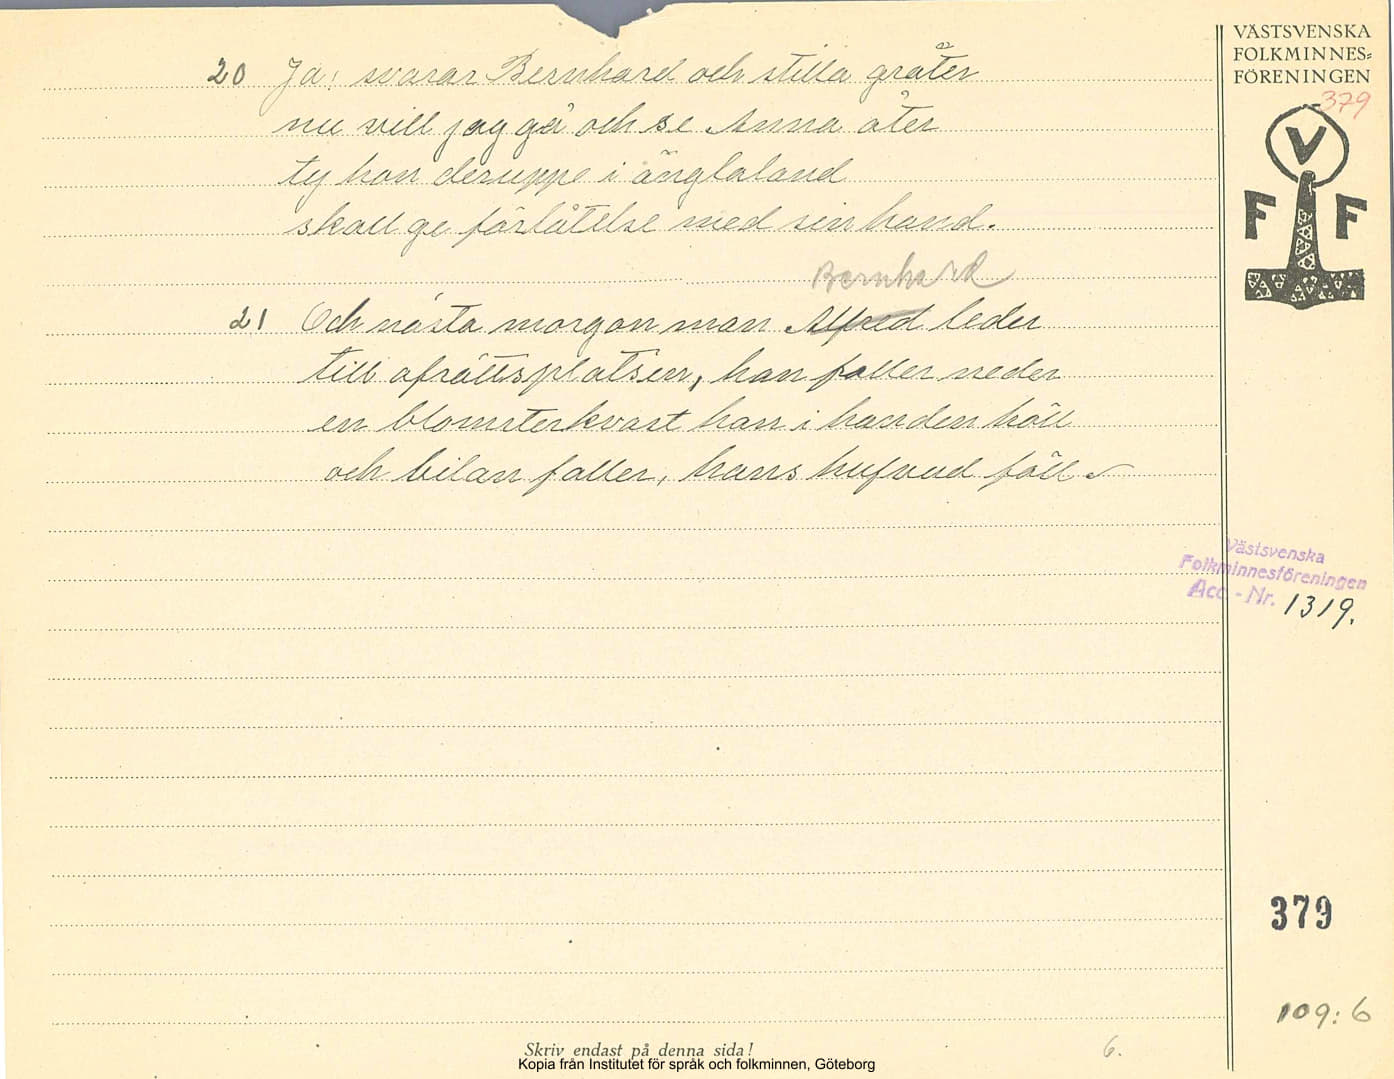 VÄSTSVENSKA
FOLKMINNES-
FÖRENINGEN
379
V
F F
20 Ja: svarar Bernhard och stilla gråter
nu vill jag gå och se Anna åter
ty hon deruppe i änglaland
skall ge förlåtelse med sin hand.
Bernhard
21 Och nästa morgon man Alfred leder
till afrättsplatsen, han faller neder
en blomsterkvast han i handen höll
och bilan faller, hans hufvud föll.
Västsvenska
Folkminnesföreningen
Acc - Nr. 1319.
379
109:6
6.
Skriv endast på denna sida!
Kopia från Institutet för språk och folkminnen, Göteborg